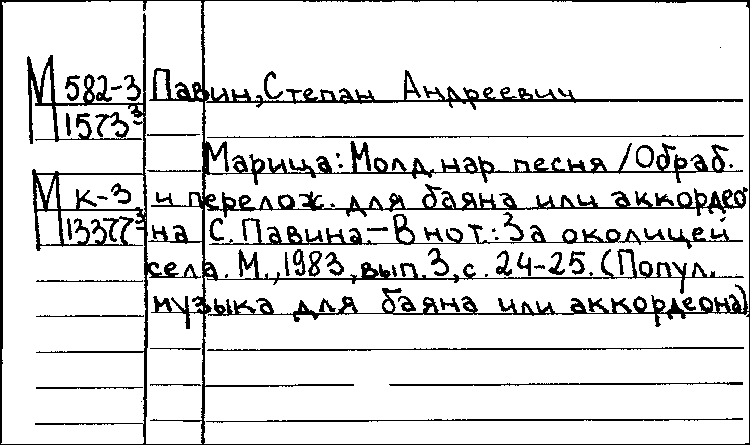 М 582-3 Павин, Степан Андреевич
1573³
Марица: Молд. нар. песня / Обраб.
М К-3 и перелож. для баяна или аккордео
13377³ на С. Павина. – В нот.: За околицей
села. М., 1983, вып. 3, с. 24-25. (Попул.
музыка для баяна или аккордеона)